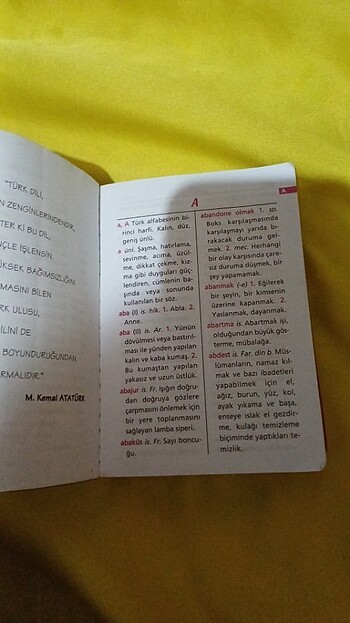 "TÜRK DİLİ,
N ZENGİNLERİNDENDİR,
TER Kİ BU DİL,
NÇLE İŞLENSİN.
YÜKSEK BAĞIMSIZLIĞINI
MASINI BİLEN
RK ULUSU,
İLİNİ DE
BOYUNDURUĞUNDAN
RMALIDIR."
M. Kemal ATATÜRK
A
A
a, A Türk alfabesinin bi-
rinci harfi. Kalın, düz,
geniş ünlü.
a ünl. Şaşma, hatırlama,
sevinme, acıma, üzül-
me, dikkat çekme, kız-
ma gibi duyguları güç-
lendiren, cümlenin ba-
şında veya sonunda
kullanılan bir söz.
aba (I) is. hlk. 1. Abla. 2.
Anne.
aba (II) is. Ar. 1. Yünün
dövülmesi veya bastırıl-
ması ile yünden yapılan
kalın ve kaba kumaş. 2.
Bu kumaştan yapılan
yakasız ve uzun üstlük.
abajur is. Fr. Işığın doğru-
dan doğruya gözlere
çarpmasını önlemek için
bir yere toplanmasını
sağlayan lamba siperi.
abaküs is. Fr. Sayı boncu-
ğu.
abandone olmak 1. sp.
Boks karşılaşmasında
karşılaşmayı yarıda bı-
rakacak duruma gel-
mek. 2. mec. Herhangi
bir olay karşısında çare-
siz duruma düşmek, bir
şey yapamamak.
abanmak (-e) 1. Eğilerek
bir şeyin, bir kimsenin
üzerine kapanmak. 2.
Yaslanmak, dayanmak.
abartma is. Abartmak işi,
olduğundan büyük gös-
terme, mübalağa.
abdest is. Far. din b. Müs-
lümanların, namaz kıl-
mak ve bazı ibadetleri
yapabilmek için el,
ağız, burun, yüz, kol,
ayak yıkama ve başa,
enseye ıslak el gezdir-
me, kulağı temizleme
biçiminde yaptıkları te-
mizlik.